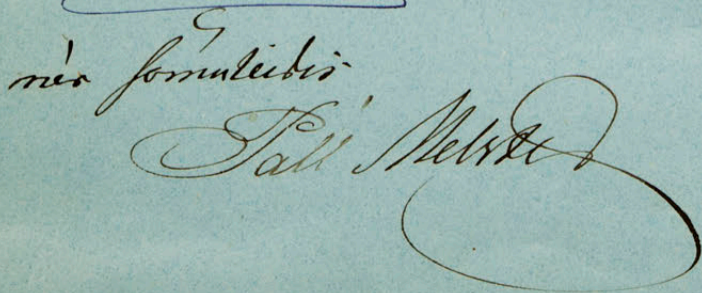 mér sömuleidis
Páll Melsteð